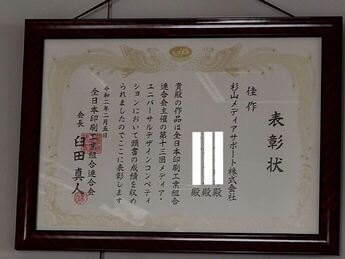 表彰状
佳作
杉山メディアサポート株式会社
殿
殿
殿
貴殿の作品は全日本印刷工業組合
連合会主催の第十三回メディア・
ユニバーサルデザインコンペティ
ションにおいて頭書の成績を収め
られましたのでここに表彰します
令和二年二月五日
全日本印刷工業組合連合会
会長 臼田真人